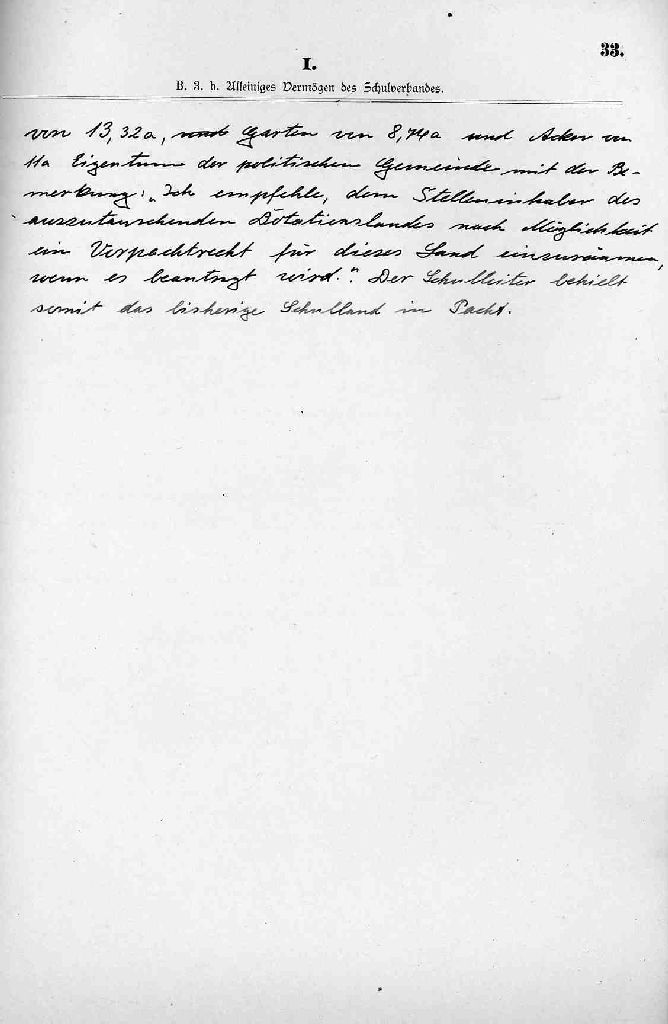 33.
I.
B. A. h. Alleiniges Vermögen des Schulverbandes.
von 13,32a, und Garten von 8,74a und Acker von
11a Eigentum der politischen Gemeinde mit der Be-
merkung: „Ich empfehle, dem Stelleninhaber des
auszutauschenden Dotationslandes nach Möglichkeit
ein Vorpachtrecht für dieses Land einzuräumen,
wenn es beantragt wird." Der Schulleiter behielt
somit das bisherige Schulland in Pacht.